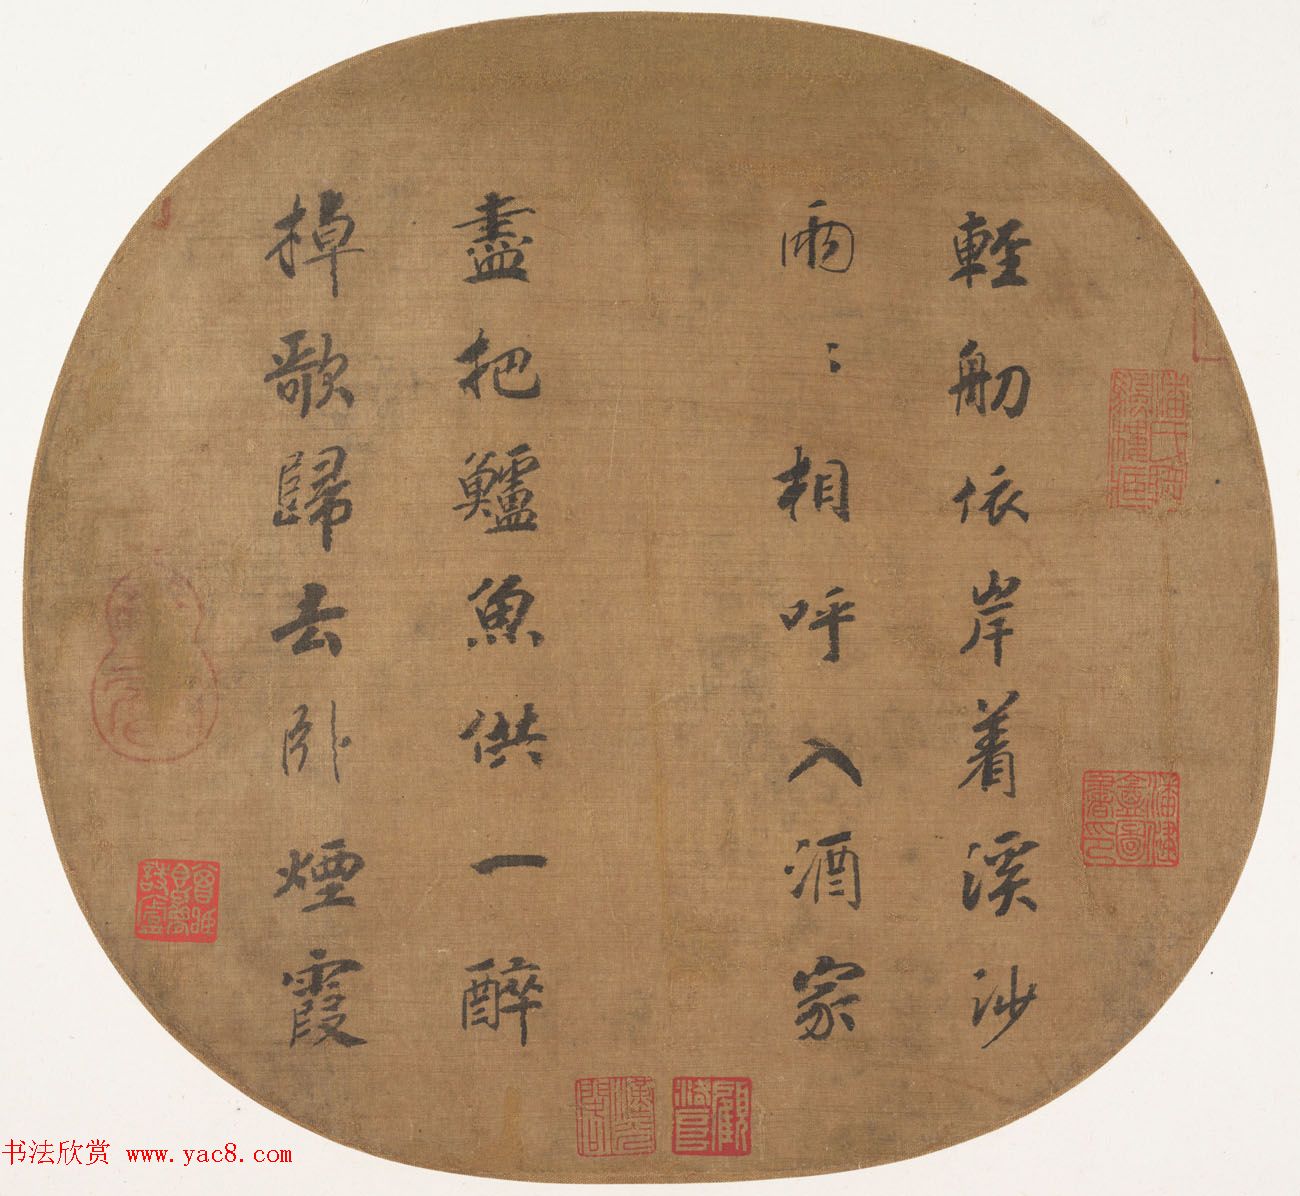 輕舠依岸着溪沙
兩〻相呼入酒家
盡把鱸魚供一醉
棹歌歸去卧煙霞
顧洛阜
漢光閣
书法欣赏 www.yac8.com